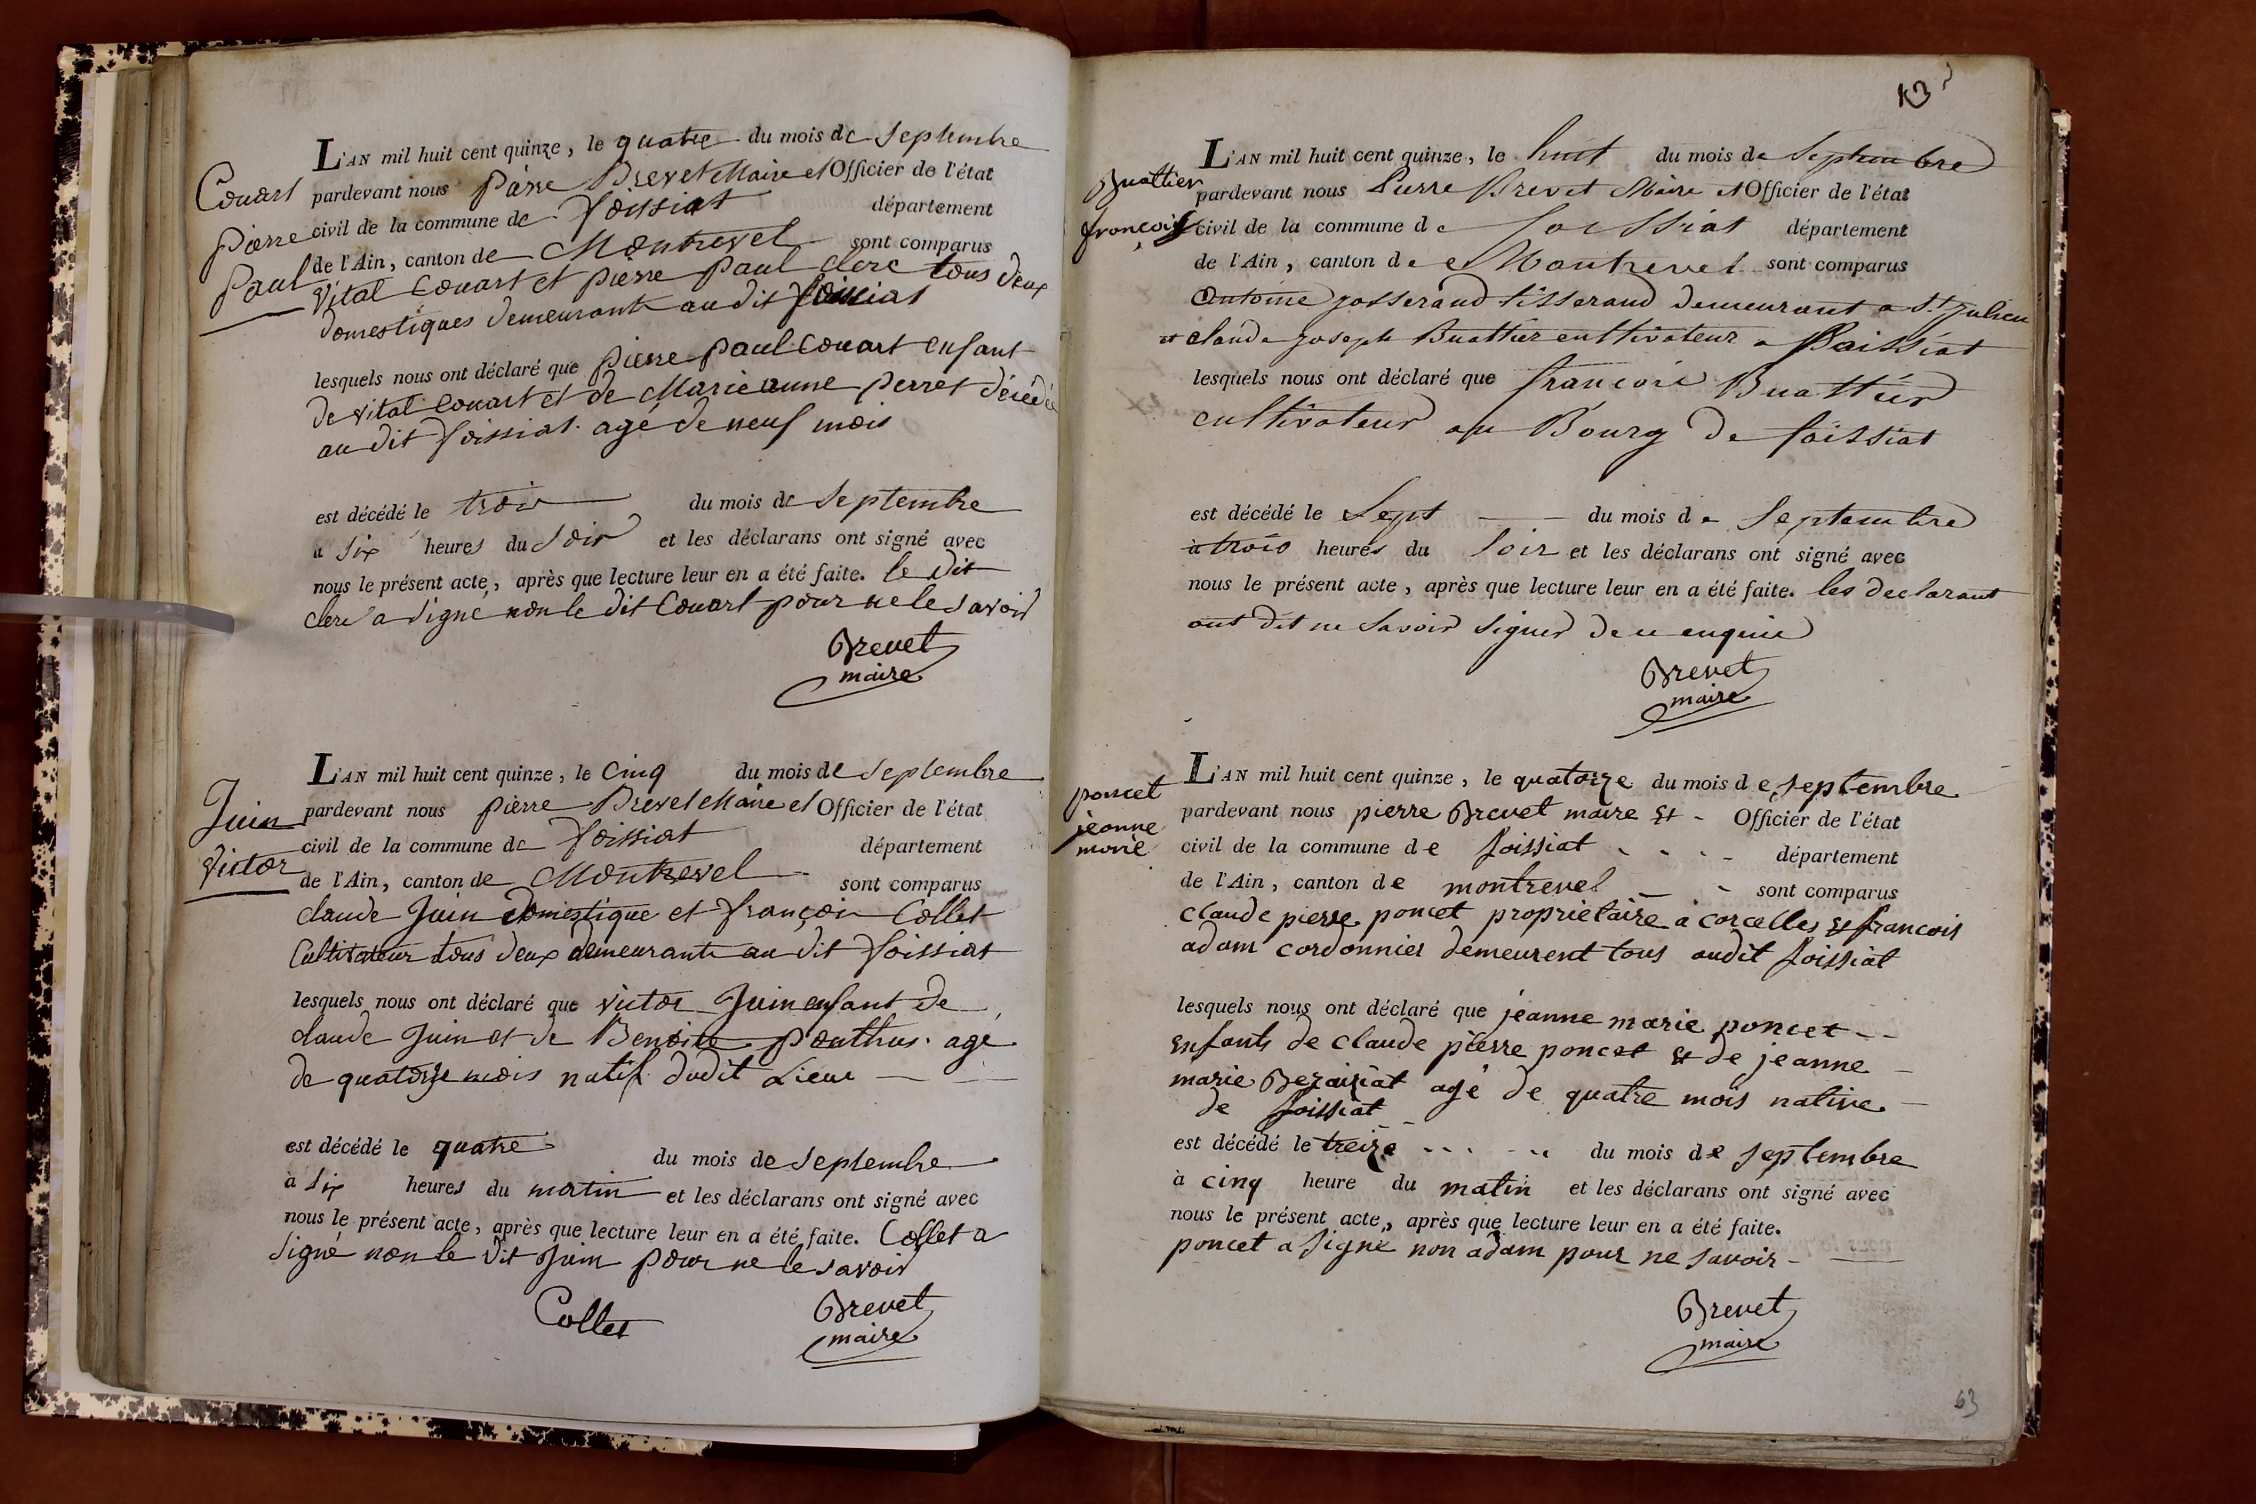 Couart
Pierre
Paul
L'AN mil huit cent quinze, le quatre du mois de Septembre
pardevant nous Pierre Brevet Maire et Officier de l'état
civil de la commune de foissiat département
de l'Ain, canton de Montrevel sont comparus
Vital Couart et pierre paul clerc tous deux
domestiques demeurants au dit foissiat
lesquels nous ont déclaré que pierre paul Couart enfant
de vital Couart et de Marieanne perret décédé
au dit foissiat. agé de neuf mois
est décédé le trois du mois de Septembre
à Six heures du Soir et les déclarans ont signé avec
nous le présent acte, après que lecture leur en a été faite. le dit
clerc a signé non le dit Couart pour ne le savoir
Brevet
maire
Juin
Victor
L'AN mil huit cent quinze, le Cinq du mois de Septembre
pardevant nous pierre Brevet Maire et Officier de l'état
civil de la commune de foissiat département
de l'Ain, canton de Montrevel sont comparus
claude Juin Domestique et françois Collet
Cultivateur tous deux demeurants au dit foissiat
lesquels nous ont déclaré que victor Juin enfant de
claude Juin et de Benoite pouthus. agé
de quatorze mois natif dudit Lieu
est décédé le quatre du mois de Septembre
à Six heures du matin et les déclarans ont signé avec
nous le présent acte, après que lecture leur en a été faite. Collet a
signé non le dit Juin pour ne le savoir
Collet
Brevet
maire
Buattier
françois
L'AN mil huit cent quinze, le huit du mois de Septembre
pardevant nous Pierre Brevet Maire et Officier de l'état
civil de la commune de foissiat département
de l'Ain, canton de Montrevel sont comparus
Antoine josserand tisserand demeurant a St julien
et claude joseph Buattier cultivateur a foissiat
lesquels nous ont déclaré que françois Buattier
cultivateur au Bourg de foissiat
est décédé le Sept du mois de Septembre
à trois heures du Soir et les déclarans ont signé avec
nous le présent acte, après que lecture leur en a été faite. les declarant
ont dit ne savoir signer de ce enquis
Brevet
maire
poncet
jeanne
marie
L'AN mil huit cent quinze, le quatorze du mois de septembre
pardevant nous pierre Brevet maire et Officier de l'état
civil de la commune de foissiat département
de l'Ain, canton de montrevel sont comparus
claude pierre poncet proprietaire a corcelles et francois
adam cordonnier demeurent tous audit foissiat
lesquels nous ont déclaré que jeanne marie poncet
enfants de claude pierre poncet et de jeanne
marie Bezaiziat agé de quatre mois native
de foissiat
est décédé le treize du mois de septembre
à cinq heure du matin et les déclarans ont signé avec
nous le présent acte, après que lecture leur en a été faite.
poncet a signé non adam pour ne savoir
Brevet
maire
63